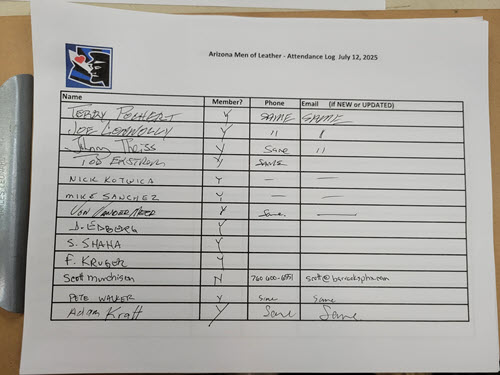 Arizona Men of Leather - Attendance Log July 12, 2025
Name Member? Phone Email (if NEW or UPDATED)
TERRY Y SAME SAME
JOE CONNOLLY Y " "
Johnny Theiss Y Same "
TOD EKSTROM Y SAME
NICK KOTWICA Y — —
MIKE SANCHEZ Y — —
VON Y Same —
J. EDBERG Y
S. SHAHA Y
F. KRUGER Y
Scott Murchison N
PETE WALKER Y Same Same
Adam Kraft Y Same Same